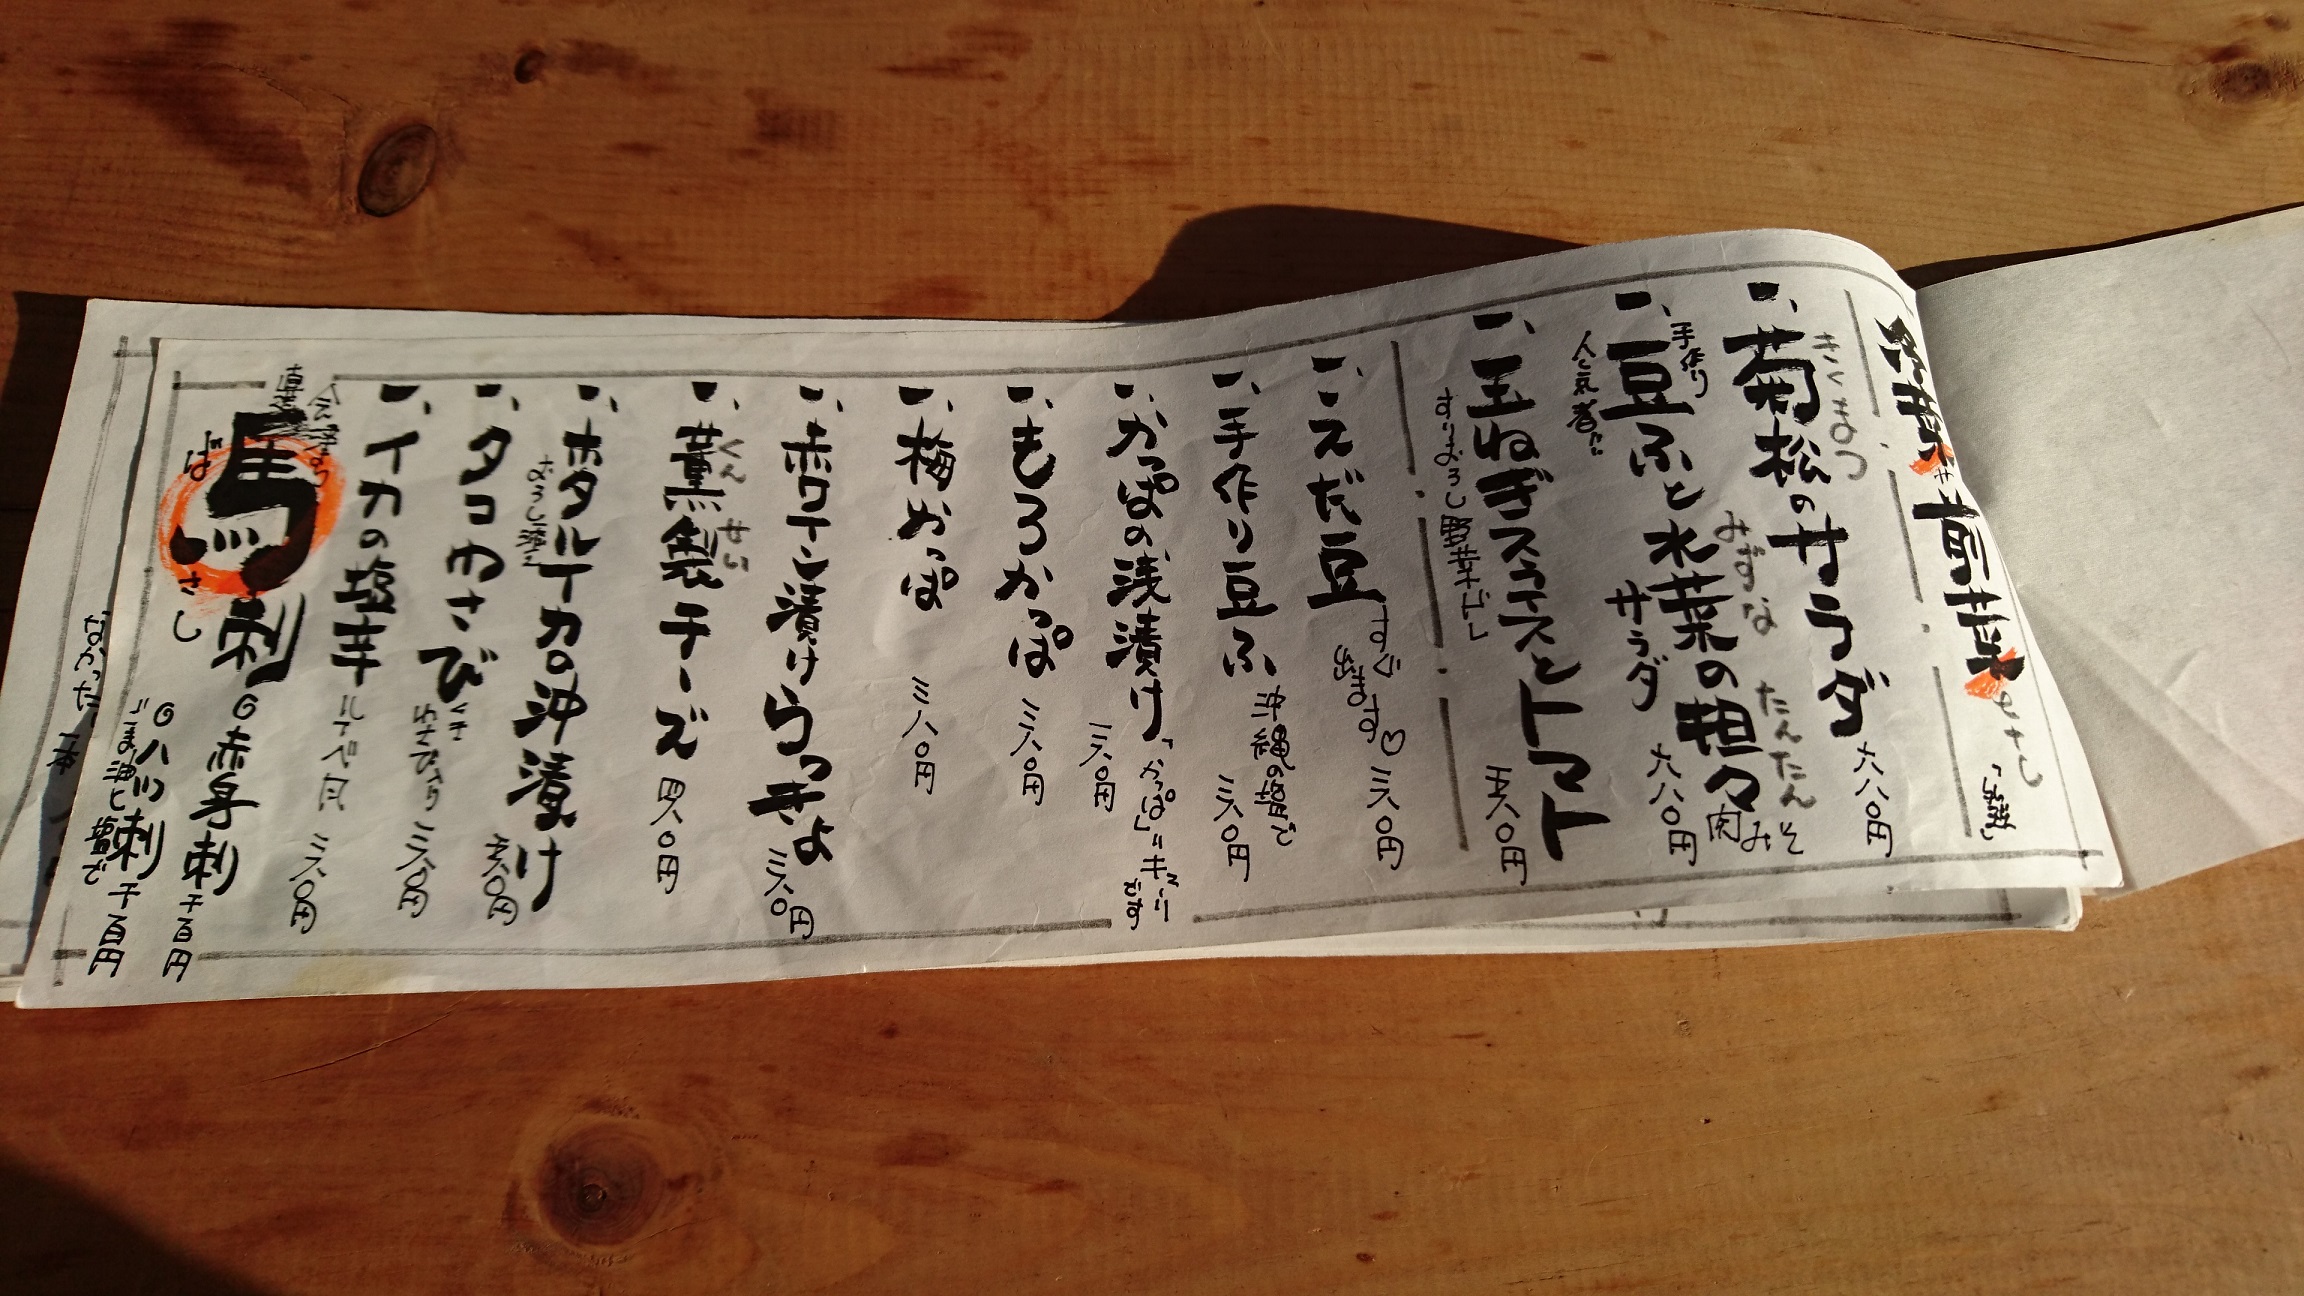 前菜
一、菊松のサラダ 六八〇円
きくまつ
一、豆ふと水菜の担々サラダ 六八〇円
手作り
みずな
たんたん
肉みそ
人気者だ
一、玉ねぎスライスとトマト 五八〇円
すりおろし野菜
一、えだ豆 三八〇円
すぐ出ます♡
一、手作り豆ふ 三八〇円
沖縄の塩で
一、かっぱの浅漬け 三八〇円
「かっぱ」=キュウリです
一、もろかっぱ 三八〇円
一、梅かっぱ 三八〇円
一、赤ワイン漬けらっきょ 三八〇円
一、薫製チーズ 四八〇円
くんせい
一、ホタルイカの沖漬け 五八〇円
おろし添え
一、タコわさび 三八〇円
一、イカの塩辛 三八〇円
会津より
直送
馬刺
ばさし
◎赤身刺 千百円
◎ハツ刺 千百円
ごま油と塩で